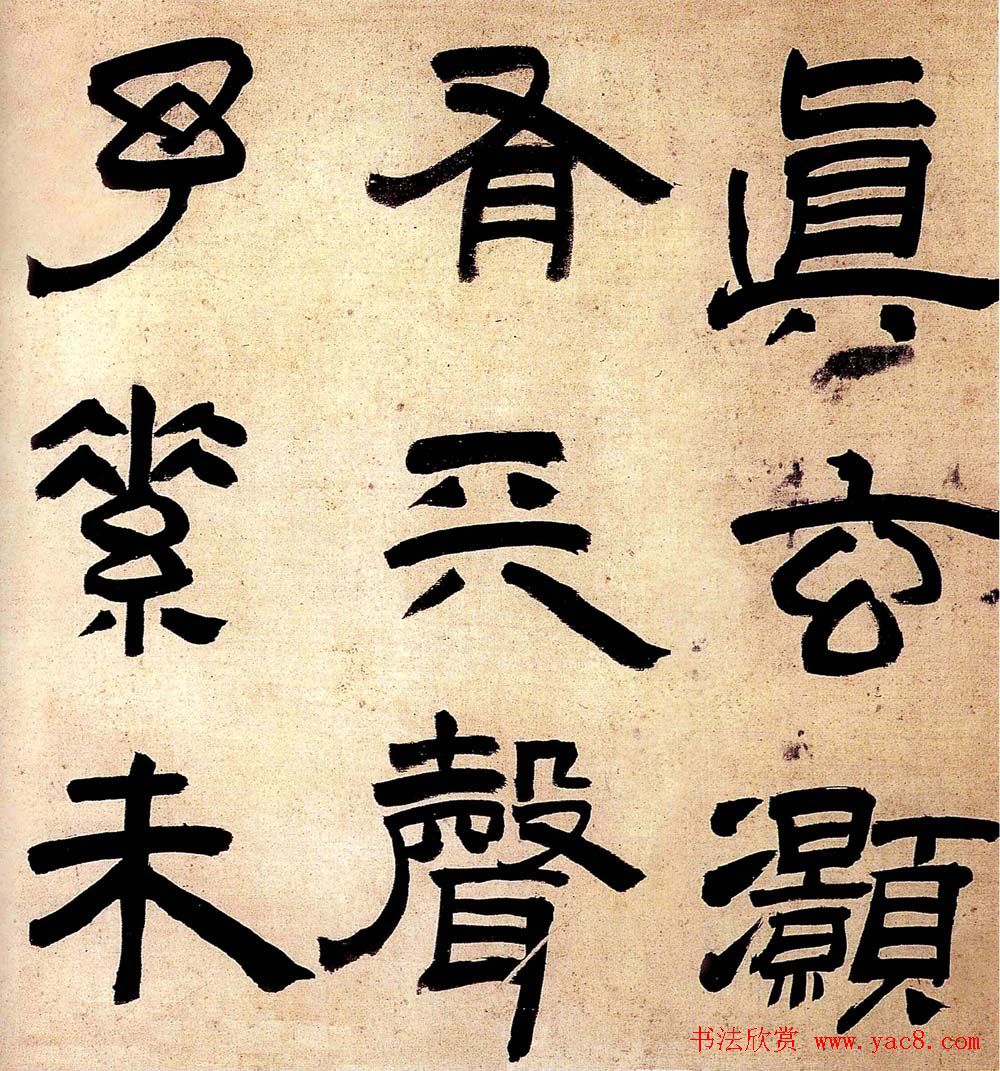 眞玄灝
聲
予素未
书法欣赏 www.yac8.com